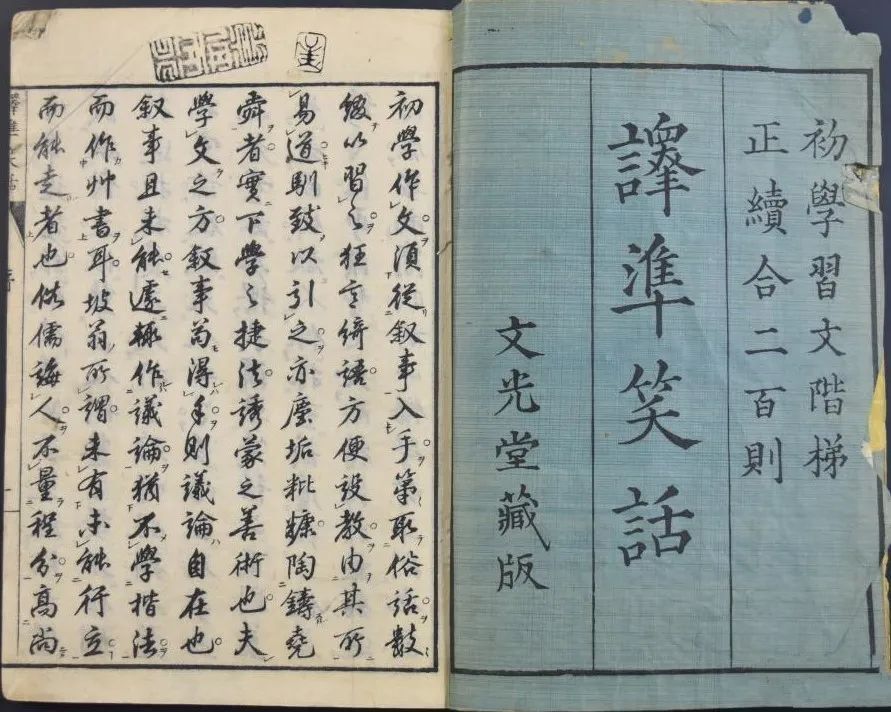 初學習文階梯
正續合二百則
譯準笑話
文光堂藏版
初學作文須從叙事入手第取俗話數
綴以習之狂言綺語方便設教由其所
易道馴致以引之亦塵垢粃糠陶鑄堯
舜者實下學之捷法誘蒙之善術也夫
學文之方叙事苟得手則議論自在也
叙事且未能遽輒作議論猶不學楷法
而作艸書耳坡翁所謂未有未能行立
而能走者也俗儒誨人不量程分高尚